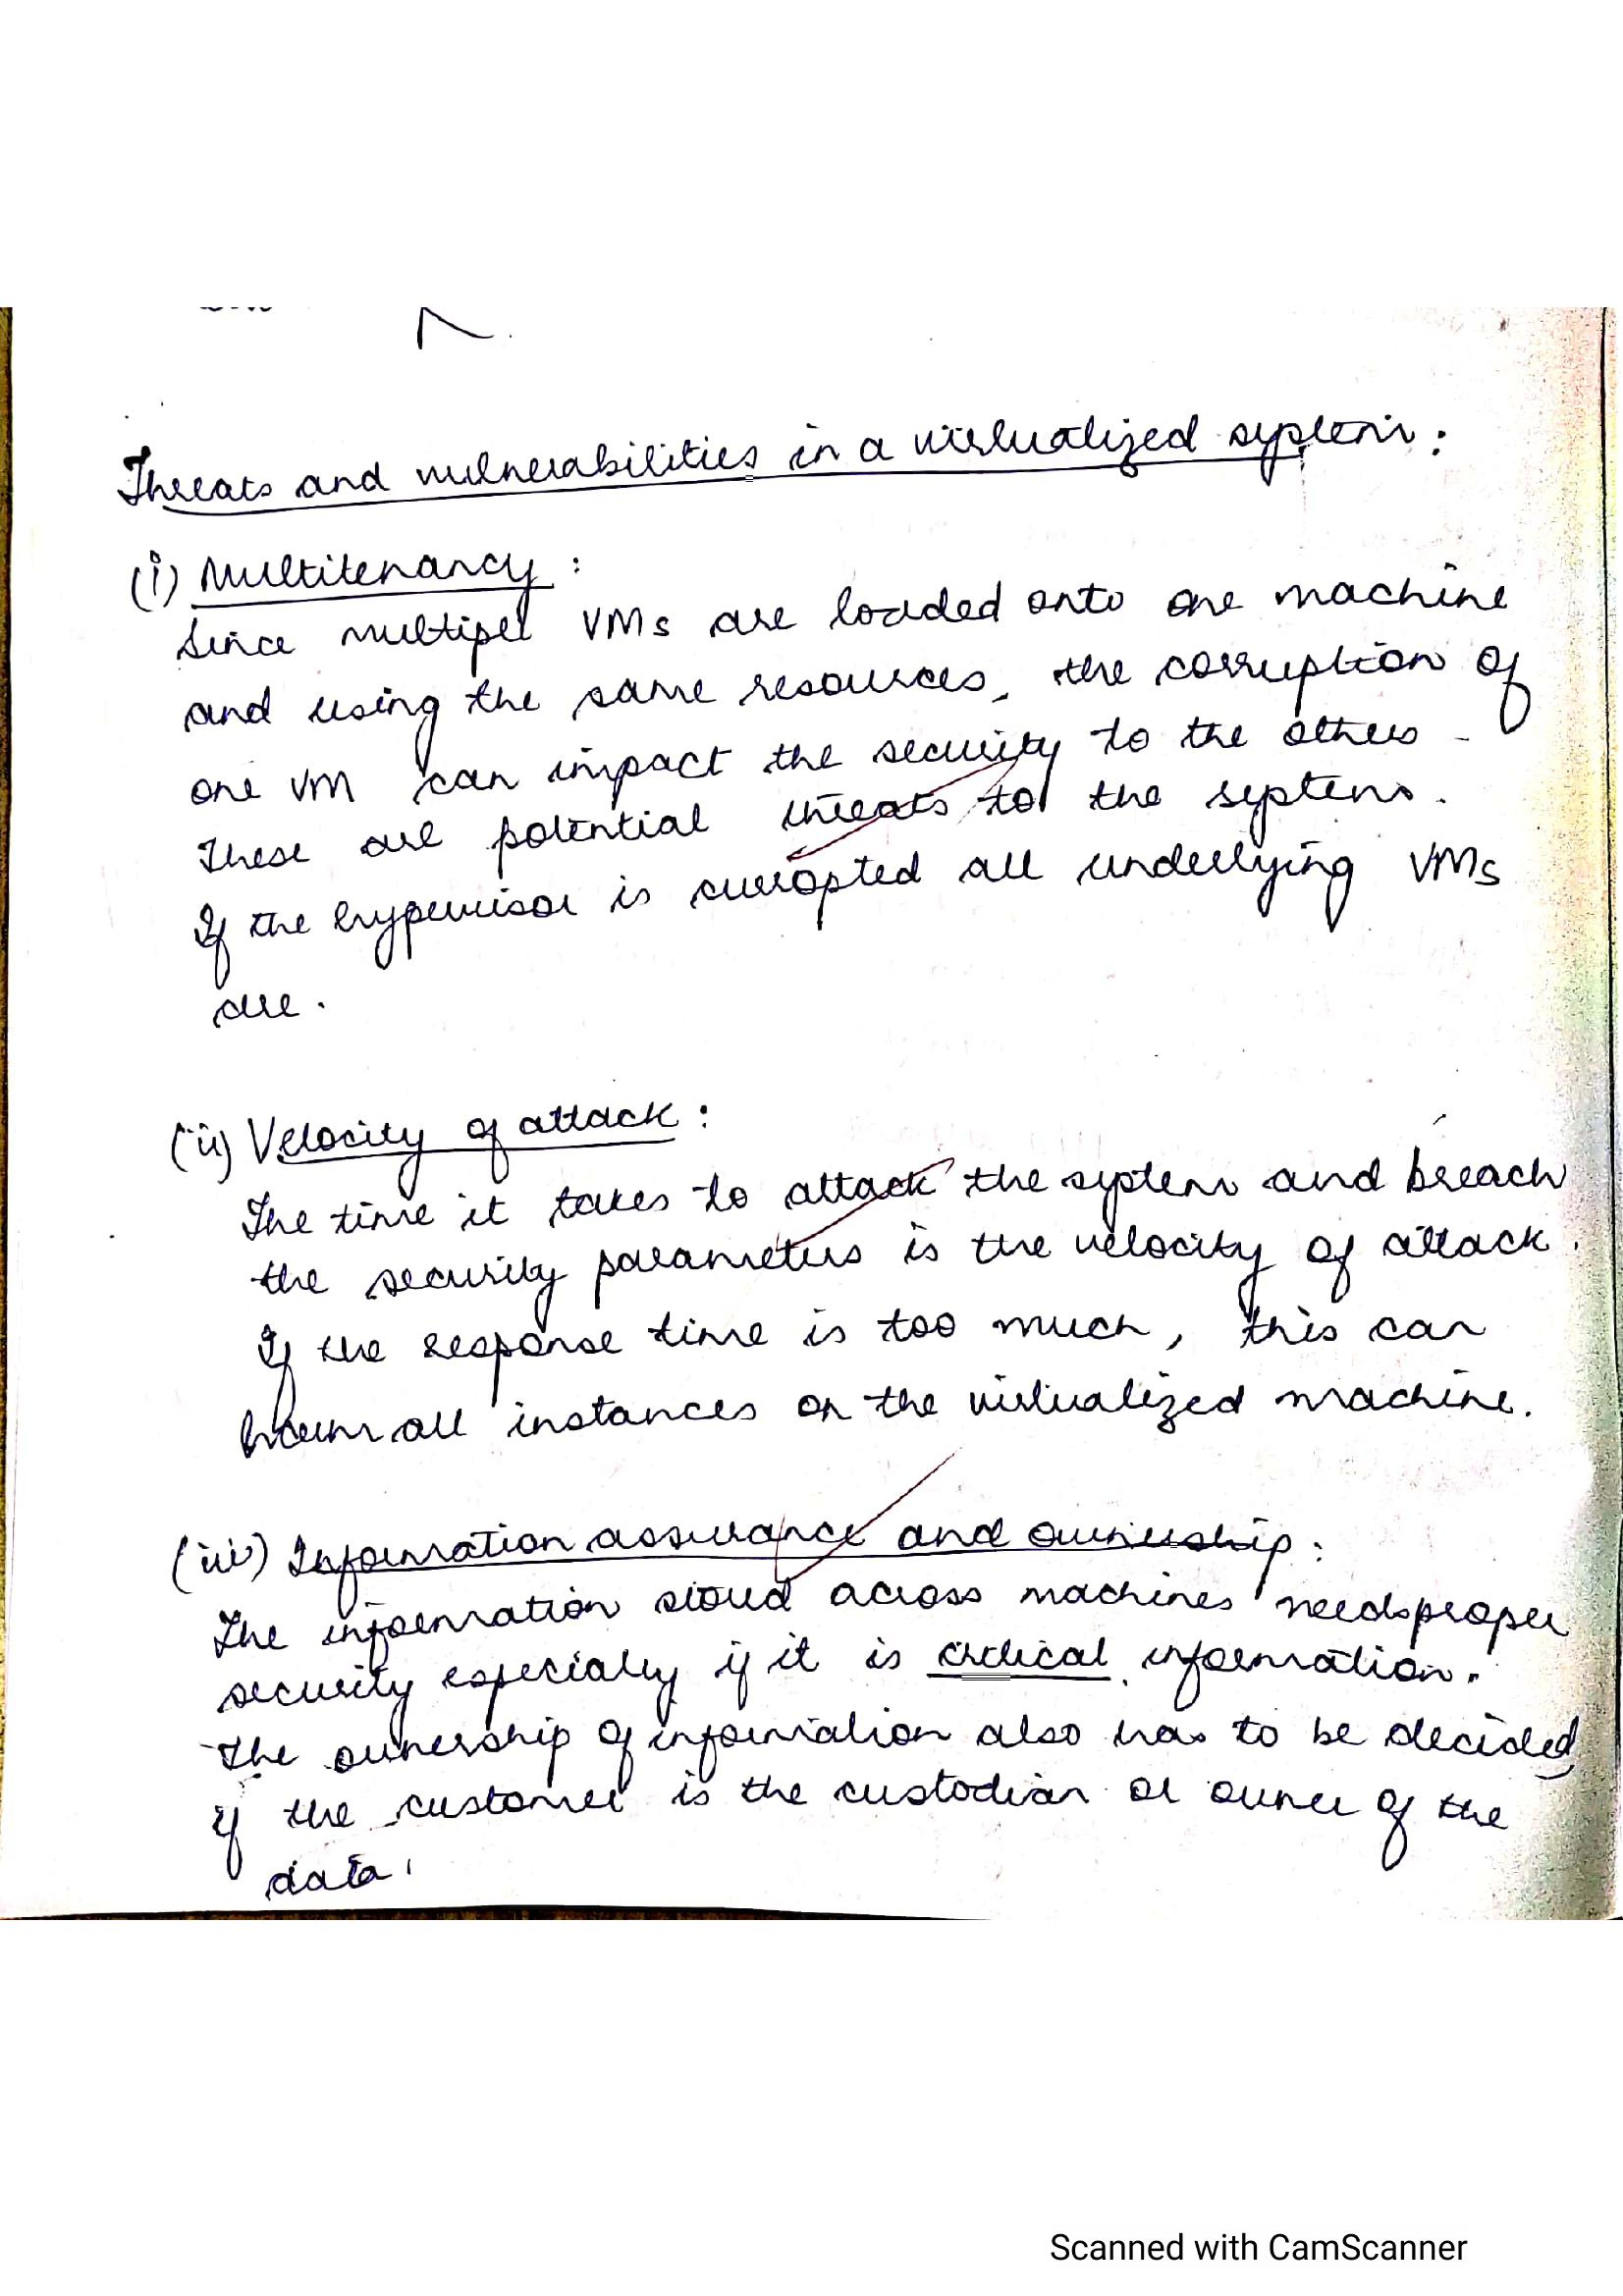 Threats and vulnerabilities in a virtualized system:
(i) Multitenancy:
Since multipel VMs are loaded onto one machine
and using the same resources, the corruption of
one VM can impact the security to the others -
These are potential threats to the system.
If the hypervisor is curropted all underlying VMs
are.
(ii) Velocity of attack:
The time it takes to attack the system and breach
the security parameters is the velocity of attack.
If the response time is too much, this can
harm all instances on the virtualized machine.
(iii) Information assurance and ownership:
The information stored across machines needs proper
security especially if it is critical information.
The ownership of information also has to be decided
if the customer is the custodian or owner of the
data.
Scanned with CamScanner